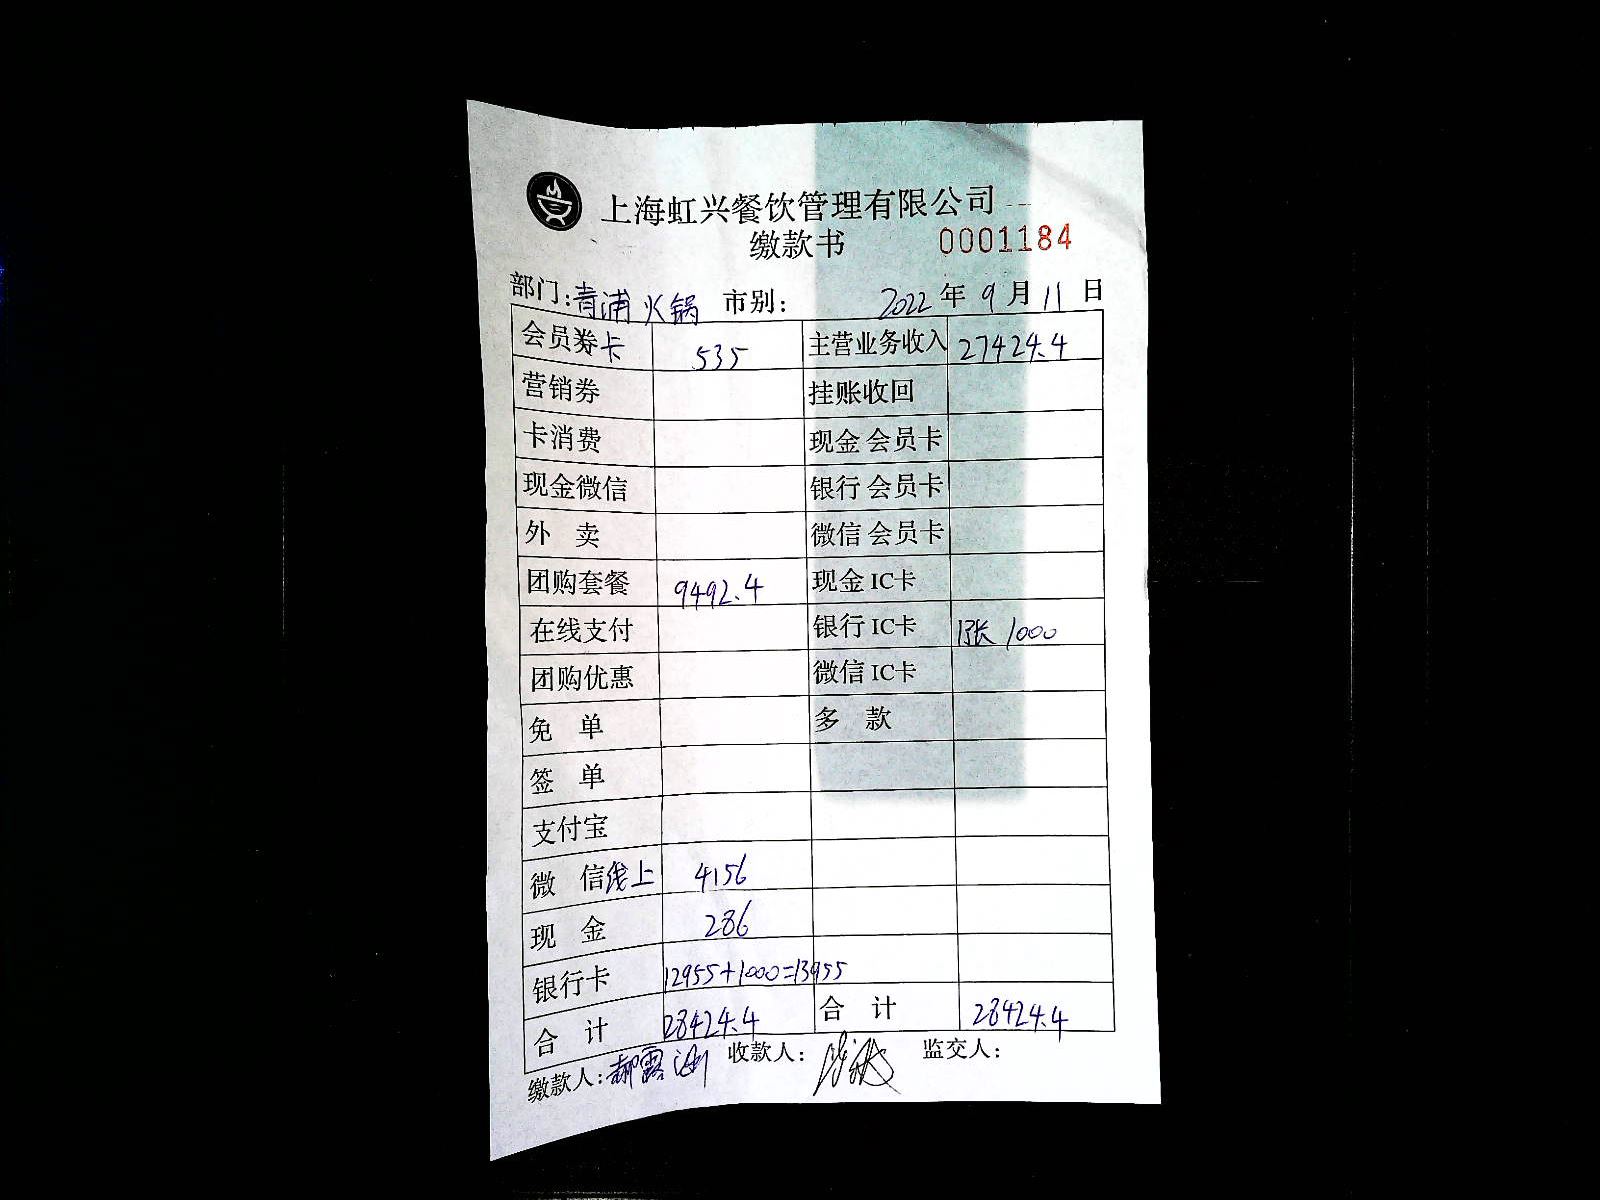 上海虹兴餐饮管理有限公司
缴款书 0001184
部门:青浦火锅 市别: 2022年9月11日
会员券卡 535 主营业务收入 27424.4
营销券 挂账收回
卡消费 现金会员卡
现金微信 银行会员卡
外 卖 微信会员卡
团购套餐 9492.4 现金IC卡
在线支付 银行IC卡 1张 1000
团购优惠 微信IC卡
免 单 多 款
签 单
支付宝
微 信线上 4156
现 金 286
银行卡 12955+1000=13955
合 计 28424.4 合 计 28424.4
缴款人:郝露 收款人: 监交人: